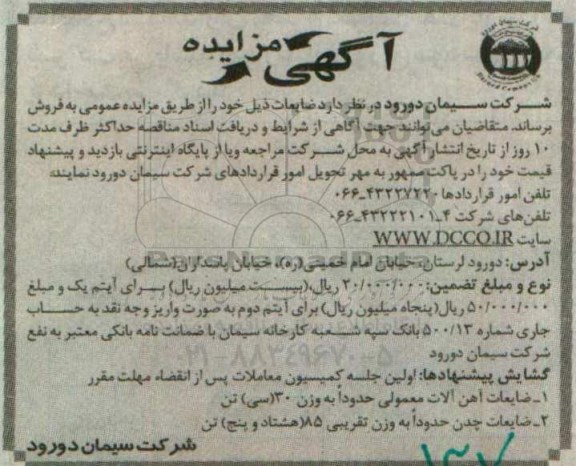 آگهی مزایده
شرکت سیمان دورود
شرکت سیمان دورود در نظر دارد ضایعات ذیل خود را از طریق مزایده عمومی به فروش
برساند. متقاضیان می‌توانند جهت آگاهی از شرایط و دریافت اسناد مناقصه حداکثر ظرف مدت
۱۰ روز از تاریخ انتشار آگهی به محل شرکت مراجعه ویا از پایگاه اینترنتی بازدید و پیشنهاد
قیمت خود را در پاکت ممهور به مهر تحویل امور قراردادهای شرکت سیمان دورود نمایند.
تلفن امور قراردادها ۴۳۲۲۷۲۲۰-۰۶۶
تلفن‌های شرکت ۴-۴۳۲۲۲۱۰۱-۰۶۶
سایت WWW.DCCO.IR
آدرس: دورود لرستان، خیابان امام خمینی(ره)، خیابان پاسداران(شمالی)
نوع و مبلغ تضمین: ۲۰/۰۰۰/۰۰۰ ریال،(بیست میلیون ریال) برای آیتم یک و مبلغ
۵۰/۰۰۰/۰۰۰ ریال(پنجاه میلیون ریال) برای آیتم دوم به صورت واریز وجه نقد به حساب
جاری شماره ۵۰۰/۱۳ بانک سپه شعبه کارخانه سیمان با ضمانت نامه بانکی معتبر به نفع
شرکت سیمان دورود
گشایش پیشنهادها: اولین جلسه کمیسیون معاملات پس از انقضاء مهلت مقرر
۱-ضایعات آهن آلات معمولی حدوداً به وزن ۳۰(سی) تن
۲-ضایعات چدن حدوداً به وزن تقریبی ۸۵(هشتاد و پنج) تن
شرکت سیمان دورود
۱۳۷
۰۲۱-۸۸۳۴۹۶۷۰-۵